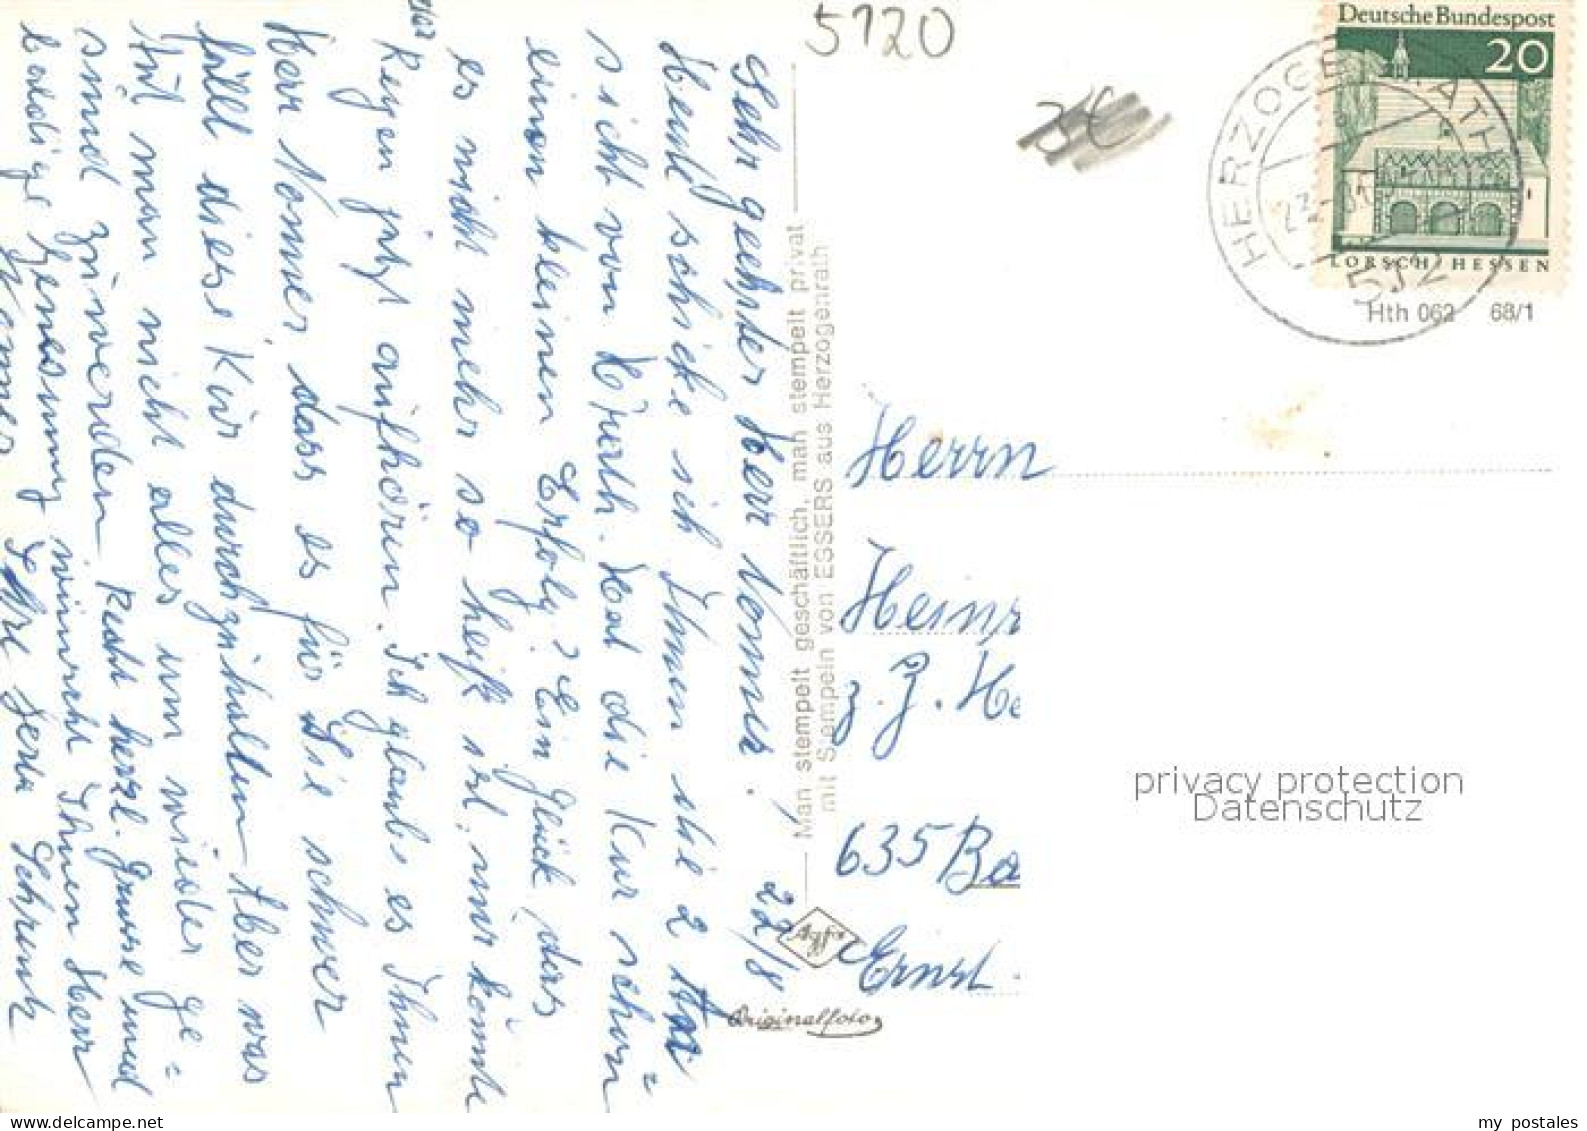 5120
3€
Deutsche Bundespost
20
LORSCH / HESSEN
HERZOGENRATH
512
Hth 062 68/1
22/8
Sehr geehrter Herr Nommer,
Heute schicke ich Ihnen die 2 An=
sicht von H'rath. Hat die Kur schon
einen kleinen Erfolg? Ein Glück, das
es nicht mehr so heiß ist, nur könnte
Regen jetzt aufhören. Ich glaube es Ihnen
Herr Nommer, dass es für Sie schwer
fällt diese Kur durchzuhalten. Aber was
tut man nicht alles um wieder ge=
sund zu werden. Recht herzl. Grüsse und
baldige Genesung wünscht Ihnen Herr
Schrenk
Man stempelt geschäftlich, man stempelt privat
mit Stempeln von ESSERS aus Herzogenrath
Agfa
Originalfoto
Herrn
Heinr
z. Z. He
635 Ba
Ernst
privacy protection
Datenschutz
my postales